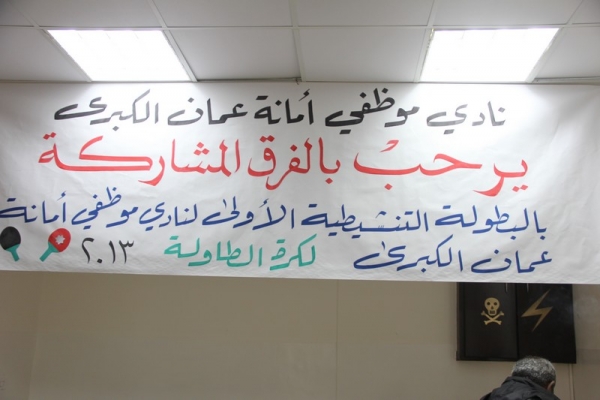 نادي موظفي أمانة عمان الكبرى
يرحب بالفرق المشاركة
بالبطولة التنشيطية الأولى لنادي موظفي أمانة
عمان الكبرى لكرة الطاولة ٢٠١٣